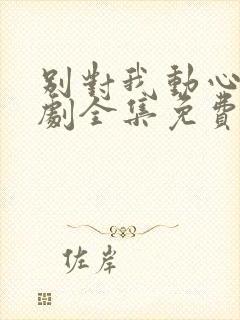 别對我動心
劇全集免費
佐岸